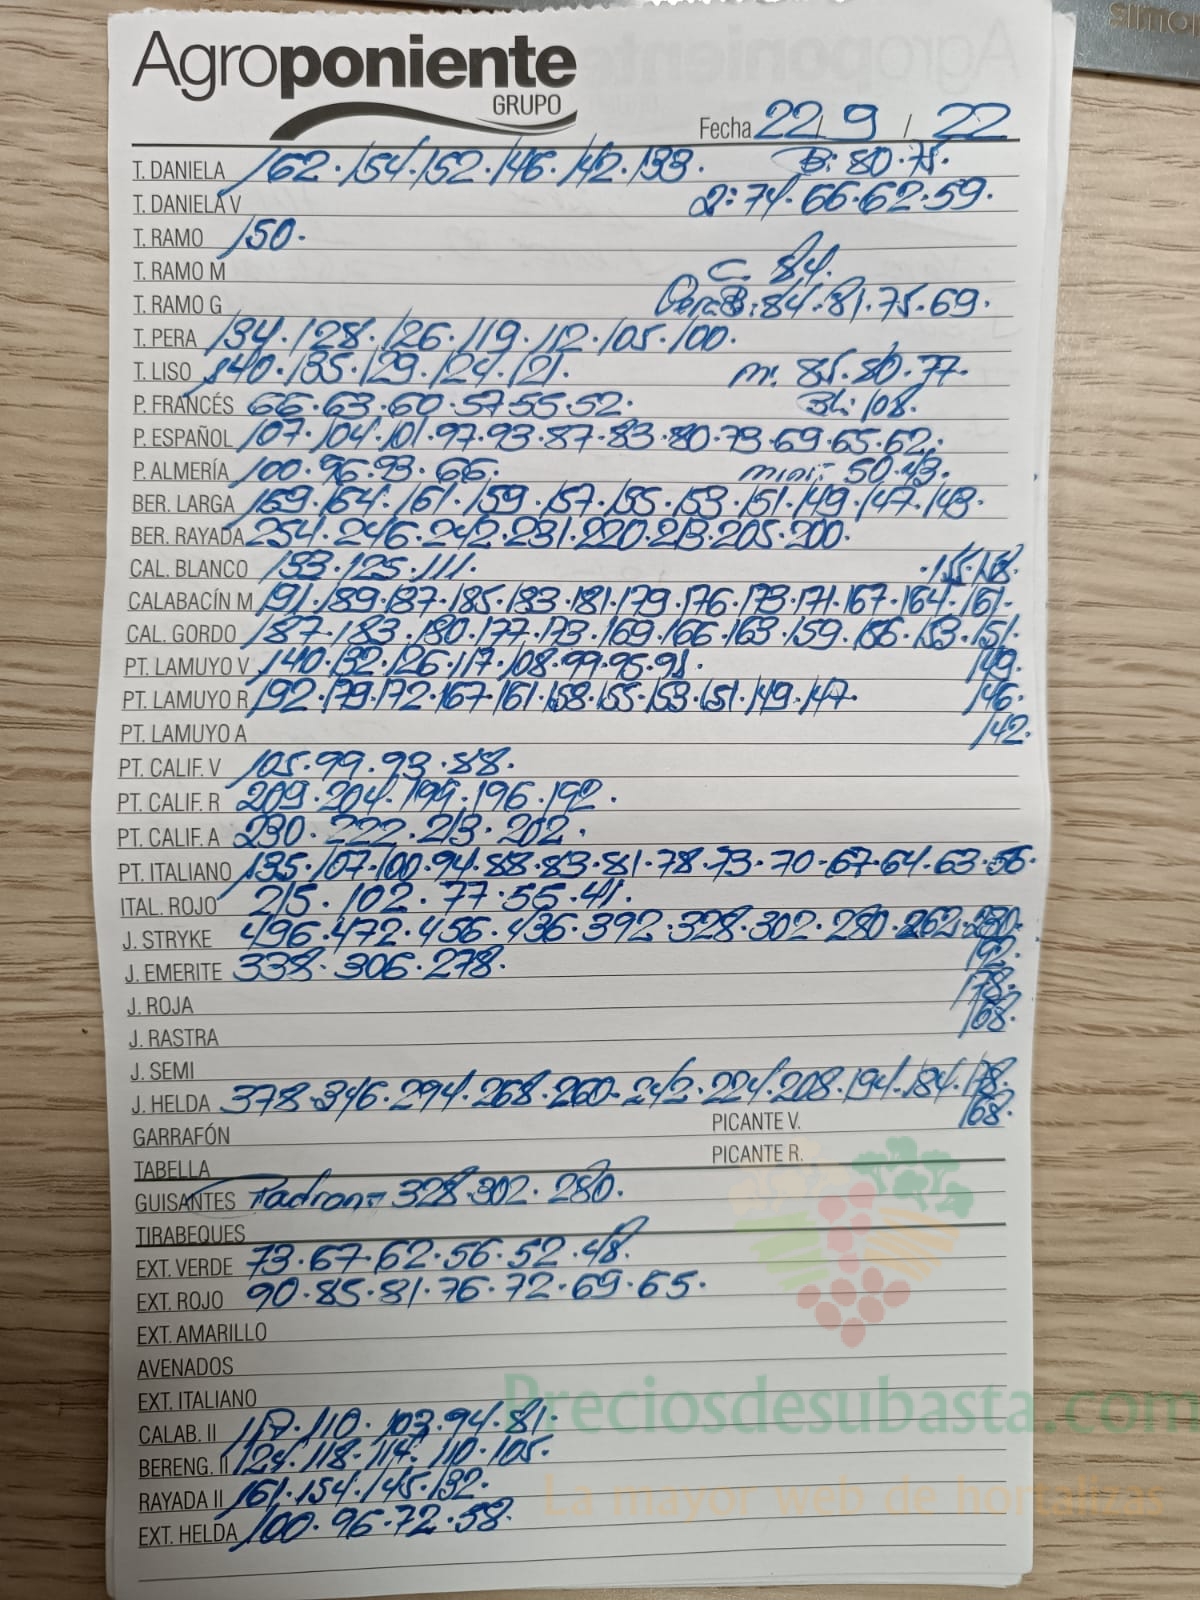 simon
Agroponiente
GRUPO
Fecha 22 / 9 / 22
T. DANELA 162·154·152·146·142·133· B: 80·75·
T. DANIELA V 2: 74·66·62·59·
T. RAMO 150·
T. RAMO M C. 84·
T. RAMO G Pera B: 84·81·75·69·
T. PERA 134·128·126·119·112·105·100·
T. LISO 140·135·129·124·121· m: 85·80·77·
P. FRANCÉS 66·63·60·57·55·52· BL: 108·
P. ESPAÑOL 107·104·101·97·93·87·83·80·73·69·65·62·
P. ALMERÍA 100·96·93·66· mini: 50·43·
BER. LARGA 169·164·161·159·157·155·153·151·149·147·143·
BER. RAYADA 254·246·242·231·220·213·205·200·
CAL. BLANCO 133·125·111· ·155·158·
CALABACÍN M 191·189·187·185·183·181·179·176·173·171·167·164·161·
CAL. GORDO 187·183·180·177·173·169·166·163·159·156·153·151·
PT. LAMUYO V 140·132·126·117·108·99·95·91· 149·
PT. LAMUYO R 192·179·172·167·161·158·155·153·151·149·147· 146·
PT. LAMUYO A 142·
PT. CALIF. V 105·99·93·88·
PT. CALIF. R 209·204·199·196·192·
PT. CALIF. A 230·222·213·202·
PT. ITALIANO 135·107·100·94·88·83·81·78·73·70·67·64·63·56·
ITAL. ROJO 215·102·77·55·41·
J. STRYKE 496·472·456·436·392·328·302·280·262·230·
J. EMERITE 338·306·278· 192·
J. ROJA 178·
J. RASTRA 168·
J. SEMI
J. HELDA 378·346·294·268·260·242·224·208·194·184·178·
GARRAFÓN PICANTE V. 168·
TABELLA PICANTE R.
GUISANTES Padron= 328·302·280·
TIRABEQUES
EXT. VERDE 73·67·62·56·52·48·
EXT. ROJO 90·85·81·76·72·69·65·
EXT. AMARILLO
AVENADOS
EXT. ITALIANO
Preciosdesubasta.com
CALAB. II 117·110·103·94·81·
BERENG. II 124·118·114·110·105·
RAYADA II 161·154·145·132·
La mayor web de hortalizas
EXT. HELDA 100·96·72·58·